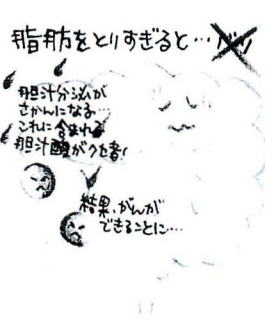 脂肪をとりすぎると…
胆汁分泌が
さかんになる…
これに含まれる
胆汁酸がクセ者!
結果、がんが
できることに…